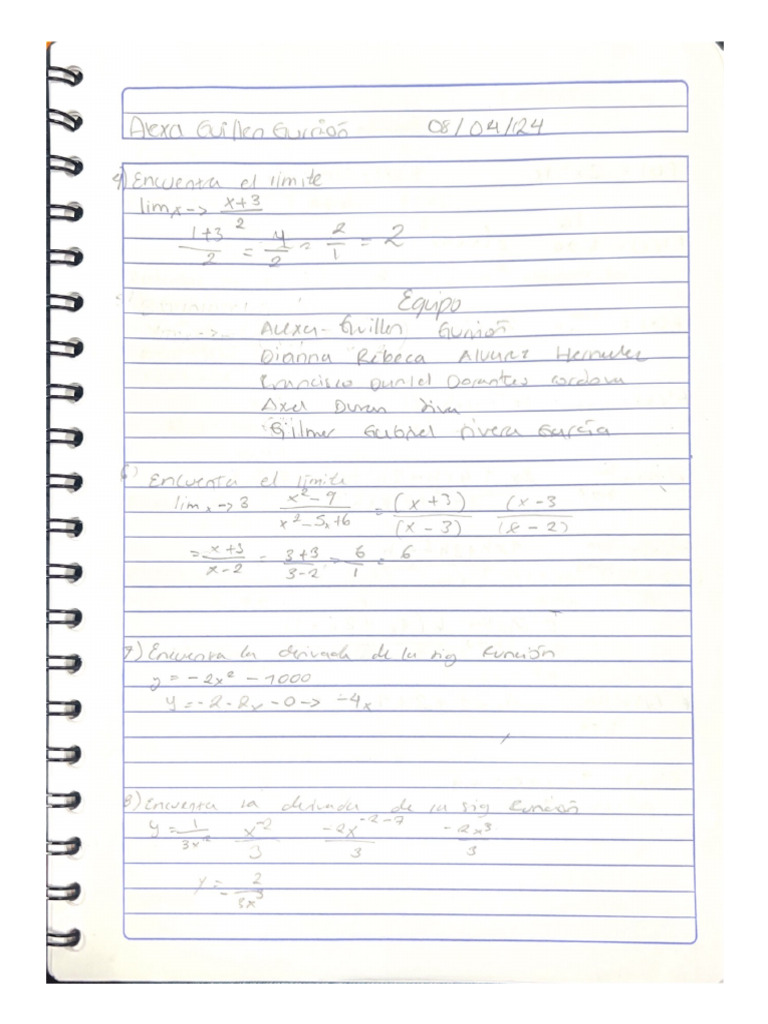 Alexa Guillen Gurrión 08/04/24
4) Encuentra el límite
lim x-> x+3
2
1+3 / 2 = 4/2 = 2/1 = 2
Equipo
Alexa Guillen Gurrión
Dianna Rebeca Alvarez Hernández
Francisco Daniel Dorantes cordova
Axel Duran
Gilmer Gabriel rivera García
6) Encuenta el límite
lim x->3 x²-9 / x²-5x+6 = (x+3) / (x-3) (x-3 / (x-2)
= x+3 / x-2 = 3+3 / 3-2 = 6/1 = 6
7) Encuentra la derivada de la sig función
y = -2x² - 1000
y = -2-2x -0 -> -4x
8) Encuentra la derivada de la sig función
y = 1 / 3x² x⁻² / 3 -2x⁻²⁻¹ / 3 -2x³ / 3
y = - 2 / 3x³